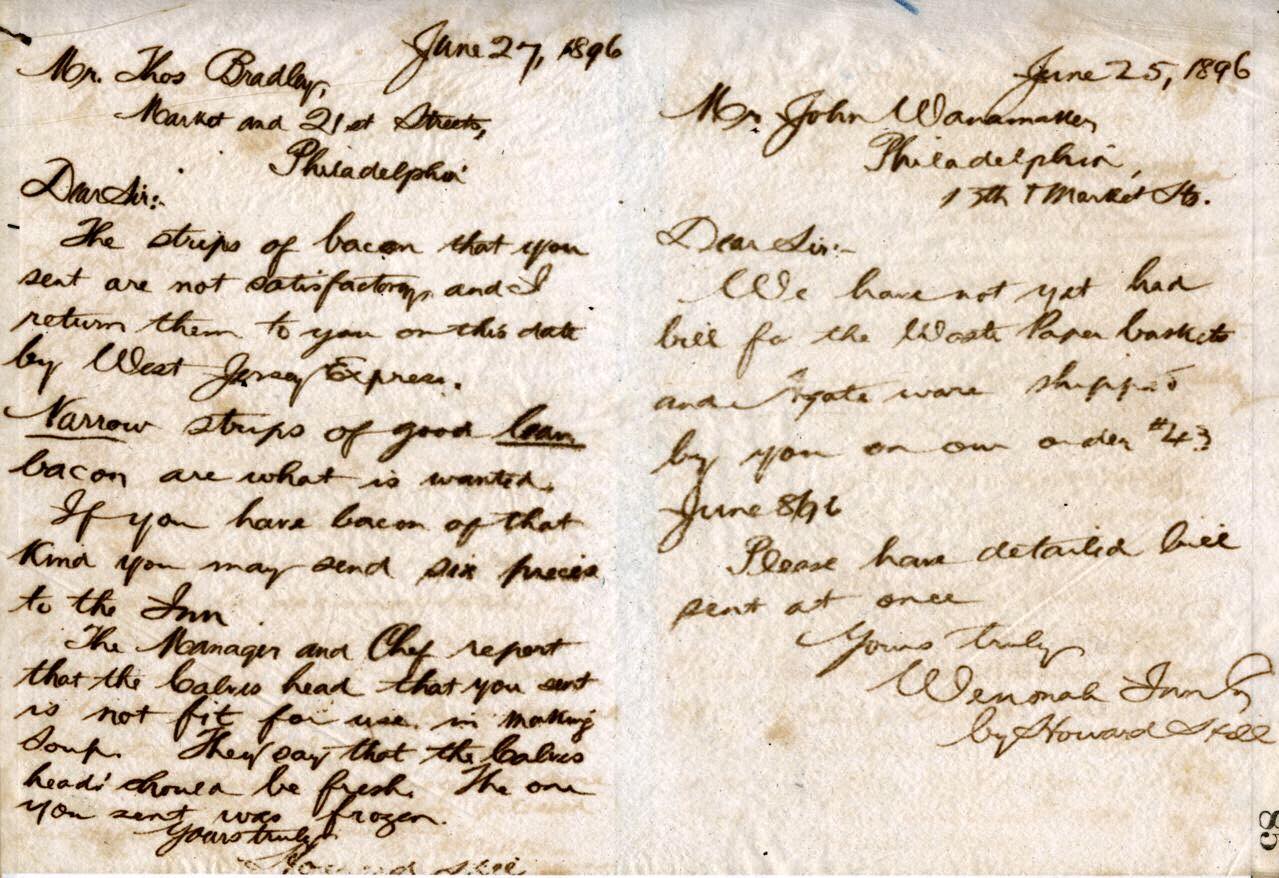 June 27, 1896
Mr. Thos Bradley,
Market and 21st Streets,
Philadelphia
Dear Sir:
The strips of bacon that you
sent are not satisfactory, and I
return them to you on this date
by West Jersey Express.
Narrow strips of good lean
bacon are what is wanted.
If you have bacon of that
kind you may send six pieces
to the Inn
The Manager and Chef report
that the Calves head that you sent
is not fit for use in making
soup. They say that the Calves
head should be fresh. The one
you sent was frozen.
Yours truly
Howard Stell
June 25, 1896
Mr. John Wanamaker,
Philadelphia,
13th & Market Sts.
Dear Sir:-
We have not yet had
bill for the Waste Paper baskets
and Agate ware shipped
by you on our order #43
June 8/96
Please have detailed bill
sent at once
Yours truly
Wenonah Inn
by Howard Stell
85